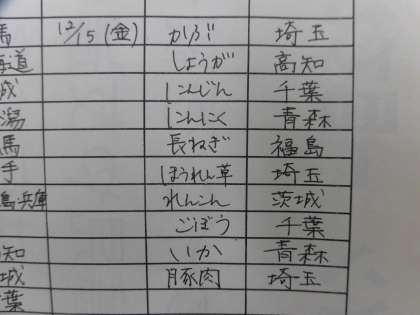 馬 12/15(金) かぶ 埼玉
海道 しょうが 高知
城 にんじん 千葉
潟 にんにく 青森
馬 長ねぎ 福島
手 ほうれん草 埼玉
島兵庫 れんこん 茨城
ごぼう 千葉
知 いか 青森
城 豚肉 埼玉
葉